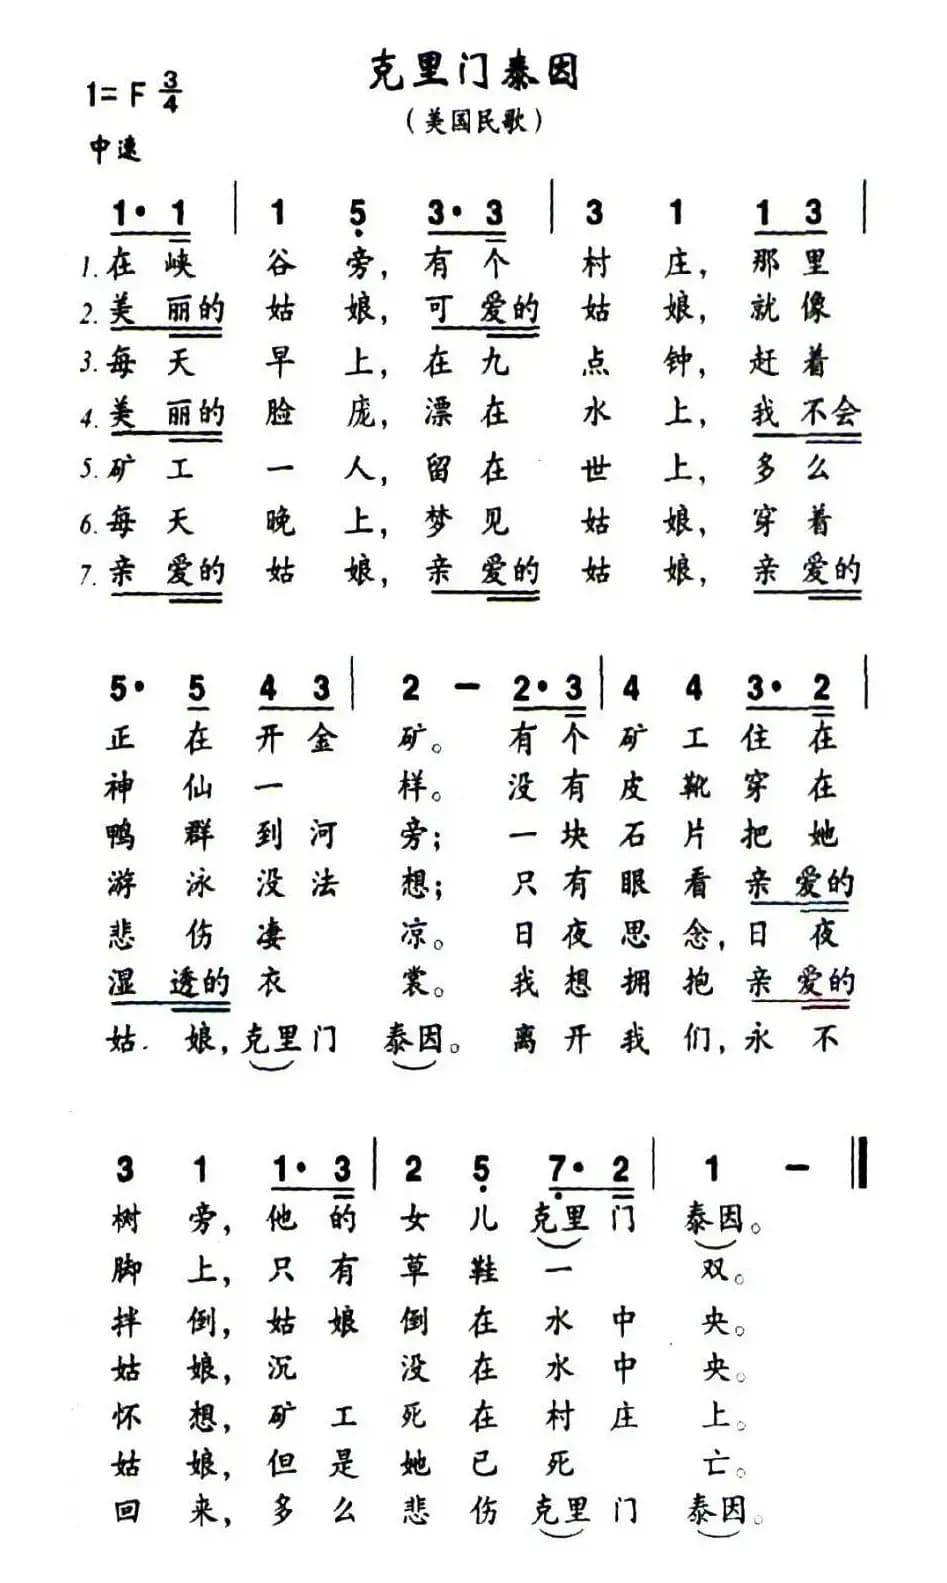 克里门泰因
1= F 3/4
(美国民歌)
中速
1· 1 | 1 5 3· 3 | 3 1 1 3 |
1. 在峡谷旁,有个村庄,那里
2. 美丽的姑娘,可爱的姑娘,就像
3. 每天早上,在九点钟,赶着
4. 美丽的脸庞,漂在水上,我不会
5. 矿工一人,留在世上,多么
6. 每天晚上,梦见姑娘,穿着
7. 亲爱的姑娘,亲爱的姑娘,亲爱的
5· 5 4 3 | 2 - 2· 3 | 4 4 3· 2 |
正在开金矿。有个矿工住在
神仙一样。没有皮靴穿在
鸭群到河旁;一块石片把她
游泳没法想;只有眼看亲爱的
悲伤凄凉。日夜思念,日夜
湿透的衣裳。我想拥抱亲爱的
姑.娘,克里门泰因。离开我们,永不
3 1 1· 3 | 2 5 7· 2 | 1 - ‖
树旁,他的女儿克里门泰因。
脚上,只有草鞋一双。
拌倒,姑娘倒在水中央。
姑娘,沉没在水中央。
怀想,矿工死在村庄上。
姑娘,但是她已死亡。
回来,多么悲伤克里门泰因。